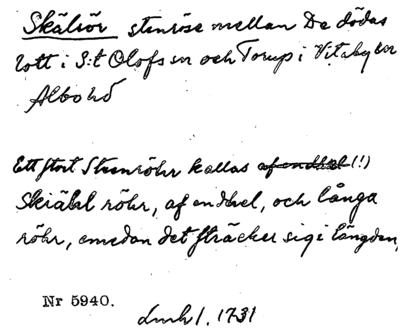 Skälrör stenröse mellan De dödas
lott i S:t Olofs sn och Torup i Vitaby sn
Albo hd
Ett stort Steenröhr kallas af endhel (!)
Skiähl röhr, af endhel, och långa
röhr, emedan det sträcker sig i längden,
Nr 5940.
Lmhl. 1731